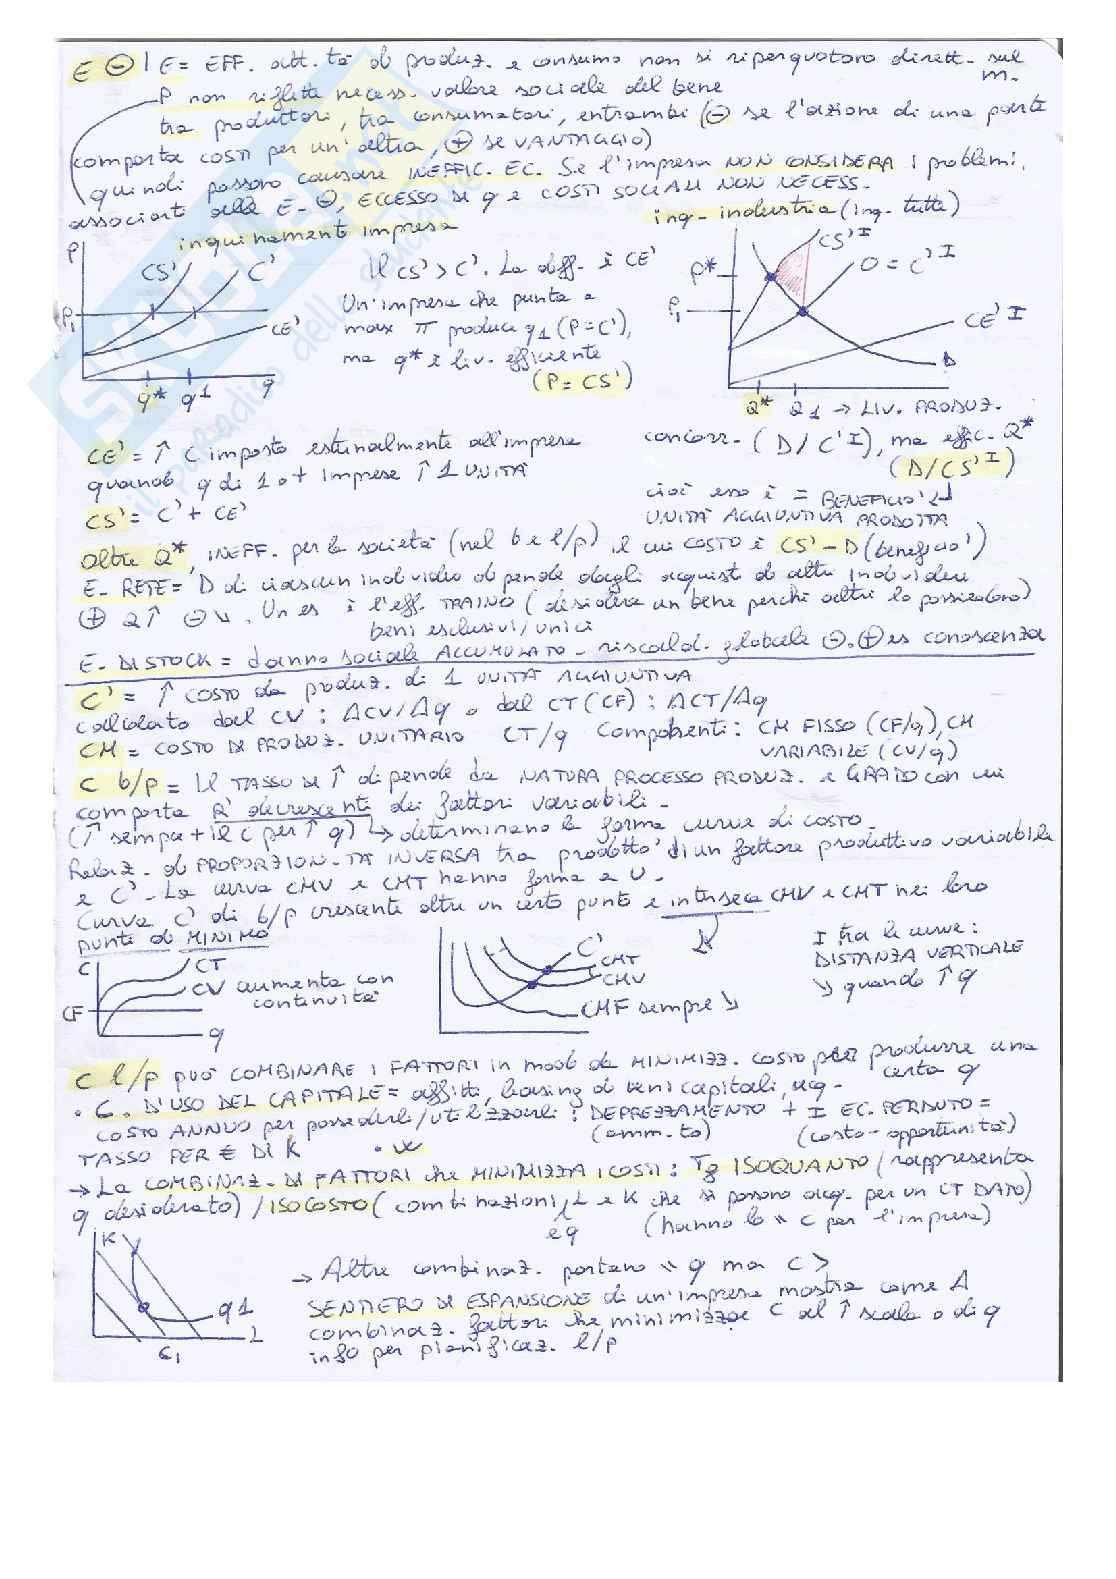 E ⊖ | E = EFF. att.tà di produz. e consumo non si ripercuotono dirett. sul m.
P non riflette necess. valore sociale del bene
tra produttori, tra consumatori, entrambi (⊖ se l'azione di una parte
comporta costi per un'altra, ⊕ se VANTAGGIO)
quindi possono causare INEFFIC. EC. Se l'impresa NON CONSIDERA i problemi
associati alle E-⊖, ECCESSO DI q e COSTI SOCIALI NON NECESS.
inquinamento impresa
inq-industria (inq. tutte)
P
CS'
C'
P1
CE'
q* q1 q
Il CS' > C'. La diff. è CE'
Un'impresa che punta a
max π produce q1 (P=C'),
ma q* è liv. efficiente
(P = CS')
CS'I
O = C'I
P*
P1
CE'I
D
Q* Q1 → LIV. PRODUZ.
CE' = ↑ C imposto esternalmente all'impresa
quando q di 1 o + imprese ↑ 1 UNITÀ
CS' = C' + CE'
concorr. (D/C'I), ma effic. Q*
(D/CS'I)
cioè esso è = BENEFICIO'
UNITÀ AGGIUNTIVA PRODOTTA
Oltre Q*, INEFF. per la società (nel b e l/p) il cui COSTO è CS' - D (beneficio')
E- RETE = D di ciascun individuo dipende dagli acquisti di altri individui
⊕ Q↑ ⊖↘. Un es è l'eff. TRAINO (desidera un bene perché altri lo possiedono)
beni esclusivi/unici
E- DI STOCK = danno sociale ACCUMULATO - riscald. globale ⊖. ⊕ es conoscenza
C' = ↑ COSTO da produz. di 1 UNITÀ AGGIUNTIVA
calcolato dal CV : ΔCV/Δq o dal CT (CF) : ΔCT/Δq
CM = COSTO DI PRODUZ. UNITARIO CT/q Componenti: CM FISSO (CF/q), CM
VARIABILE (CV/q)
C b/p = Il TASSO DI ↑ dipende da NATURA PROCESSO PRODUZ. e GRADO con cui
comporta R' decrescenti dei fattori variabili -
(↑ sempre + il C per ↑ q) ↳ determinano la forma curve di costo.
Relaz. di PROPORZION.TÀ INVERSA tra prodotto' di un fattore produttivo variabile
e C'. La curva CMV e CMT hanno forma a U.
Curva C' di b/p crescente oltre un certo punto e interseca CMV e CMT nei loro
punti di MINIMO
C
CT
CV aumenta con
continuità
CF
q
C'
CMT
CMV
CMF sempre ↘
I tra le curve:
DISTANZA VERTICALE
↘ quando ↑ q
C l/p può COMBINARE I FATTORI in modo da MINIMIZZ. COSTO per produrre una
certa q
• C. D'USO DEL CAPITALE = affitti, leasing di beni capitali, acq-
COSTO ANNUO per possederli/utilizzarli : DEPREZZAMENTO + I EC. PERDUTO =
(amm.to) (costo-opportunità)
TASSO PER € DI K • W
→ La COMBINAZ. DI FATTORI che MINIMIZZA i COSTI: Tg ISOQUANTO (rappresenta
q desiderato) / ISOCOSTO (combinazioni L e K che si possono acq. per un CT DATO)
eq (hanno lo " C per l'impresa)
K
q1
L
C1
→ Altre combinaz. portano " q ma C >
SENTIERO DI ESPANSIONE di un'impresa mostra come Δ
combinaz. fattori che minimizza C al ↑ scala o di q
info per pianificaz. l/p